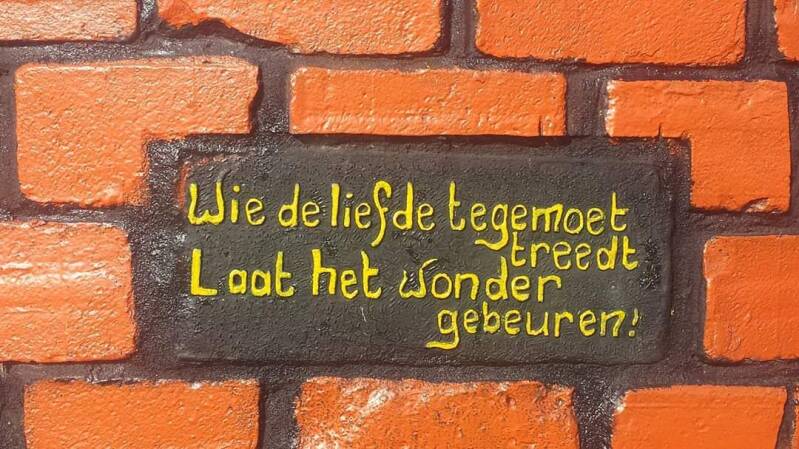 Wie de liefde tegemoet
treedt
Laat het wonder
gebeuren!